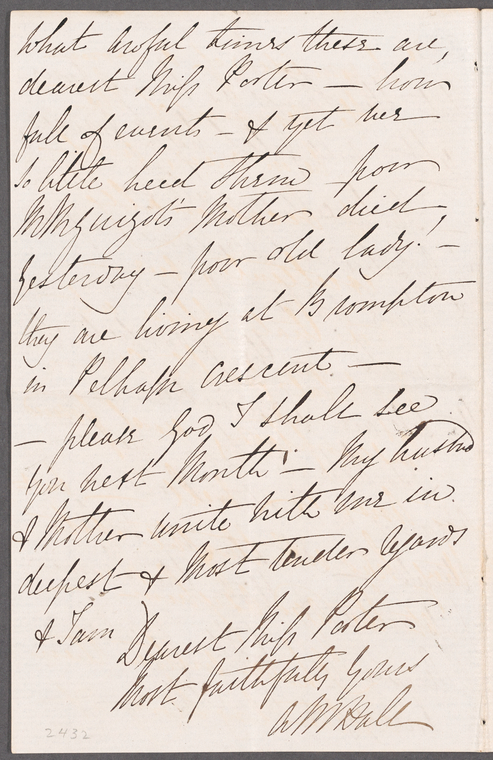 What awful times these are,
dearest Miss Porter — how
full of events — & yet we
so little heed them poor
M Guizots Mother died
Yesterday — poor old lady! —
they are living at Brompton
in Pelham Crescent —
— please God I shall see
you next Month! — My husbnd
& Mother unite with me in
deepest & Most tender regards
& I am
Dearest Miss Porter
Most faithfully Yours
A M Hall
2432